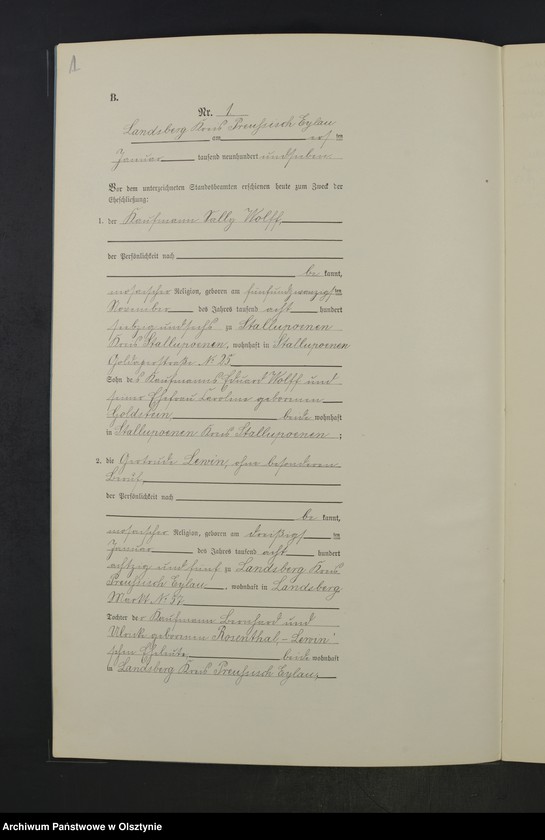 1
B.
Nr. 1
Landsberg Kreis Preußisch Eylau
am ten
Januar tausend neunhundert und sieben
Vor dem unterzeichneten Standesbeamten erschienen heute zum Zweck der
Eheschließung:
1. der Kaufmann Sally Wolff,
der Persönlichkeit nach
be kannt,
mosaischer Religion, geboren am fünfundzwanzigsten
November des Jahres tausend acht hundert
siebzig und sechs zu Stallupoenen
Kreis Stallupoenen, wohnhaft in Stallupoenen
Goldaperstraße No 25
Sohn des Kaufmanns Eduard Wolff und
seiner Ehefrau Caroline geborenen
Goldstein beide wohnhaft
in Stallupoenen Kreis Stallupoenen ;
2. die Gertrude Lewin, ohne besonderen
Beruf,
der Persönlichkeit nach
be kannt,
mosaischer Religion, geboren am dreißigsten
Januar des Jahres tausend acht hundert
achtzig und fünf zu Landsberg Kreis
Preußisch Eylau, wohnhaft in Landsberg
Markt No
Tochter der Kaufmann Bernhard und
geborenen Rosenthal-Lewin'
schen Eheleute, beide wohnhaft
in Landsberg Kreis Preußisch Eylau,
Archiwum Państwowe w Olsztynie